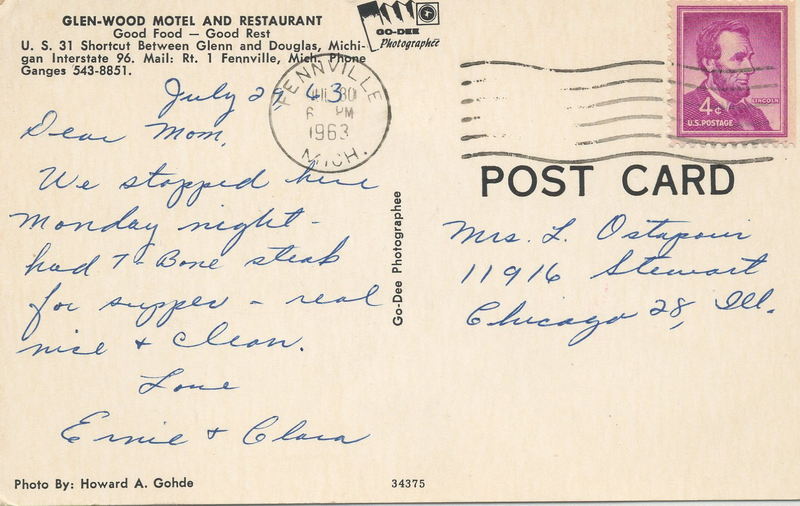 GLEN-WOOD MOTEL AND RESTAURANT
Good Food — Good Rest
U. S. 31 Shortcut Between Glenn and Douglas, Michi-
gan Interstate 96. Mail: Rt. 1 Fennville, Mich. Phone
Ganges 543-8851.
GO-DEE
Photographee
FENNVILLE
30
PM
1963
MICH.
4¢
LINCOLN
U.S. POSTAGE
July 29 63
Dear Mom,
We stopped here
Monday night -
had T-Bone steak
for supper - real
nice & clean.
Love
Ernie & Clara
Go-Dee Photographee
POST CARD
Mrs. L. Ostapowir
11916 Stewart
Chicago 28, Ill.
Photo By: Howard A. Gohde
34375